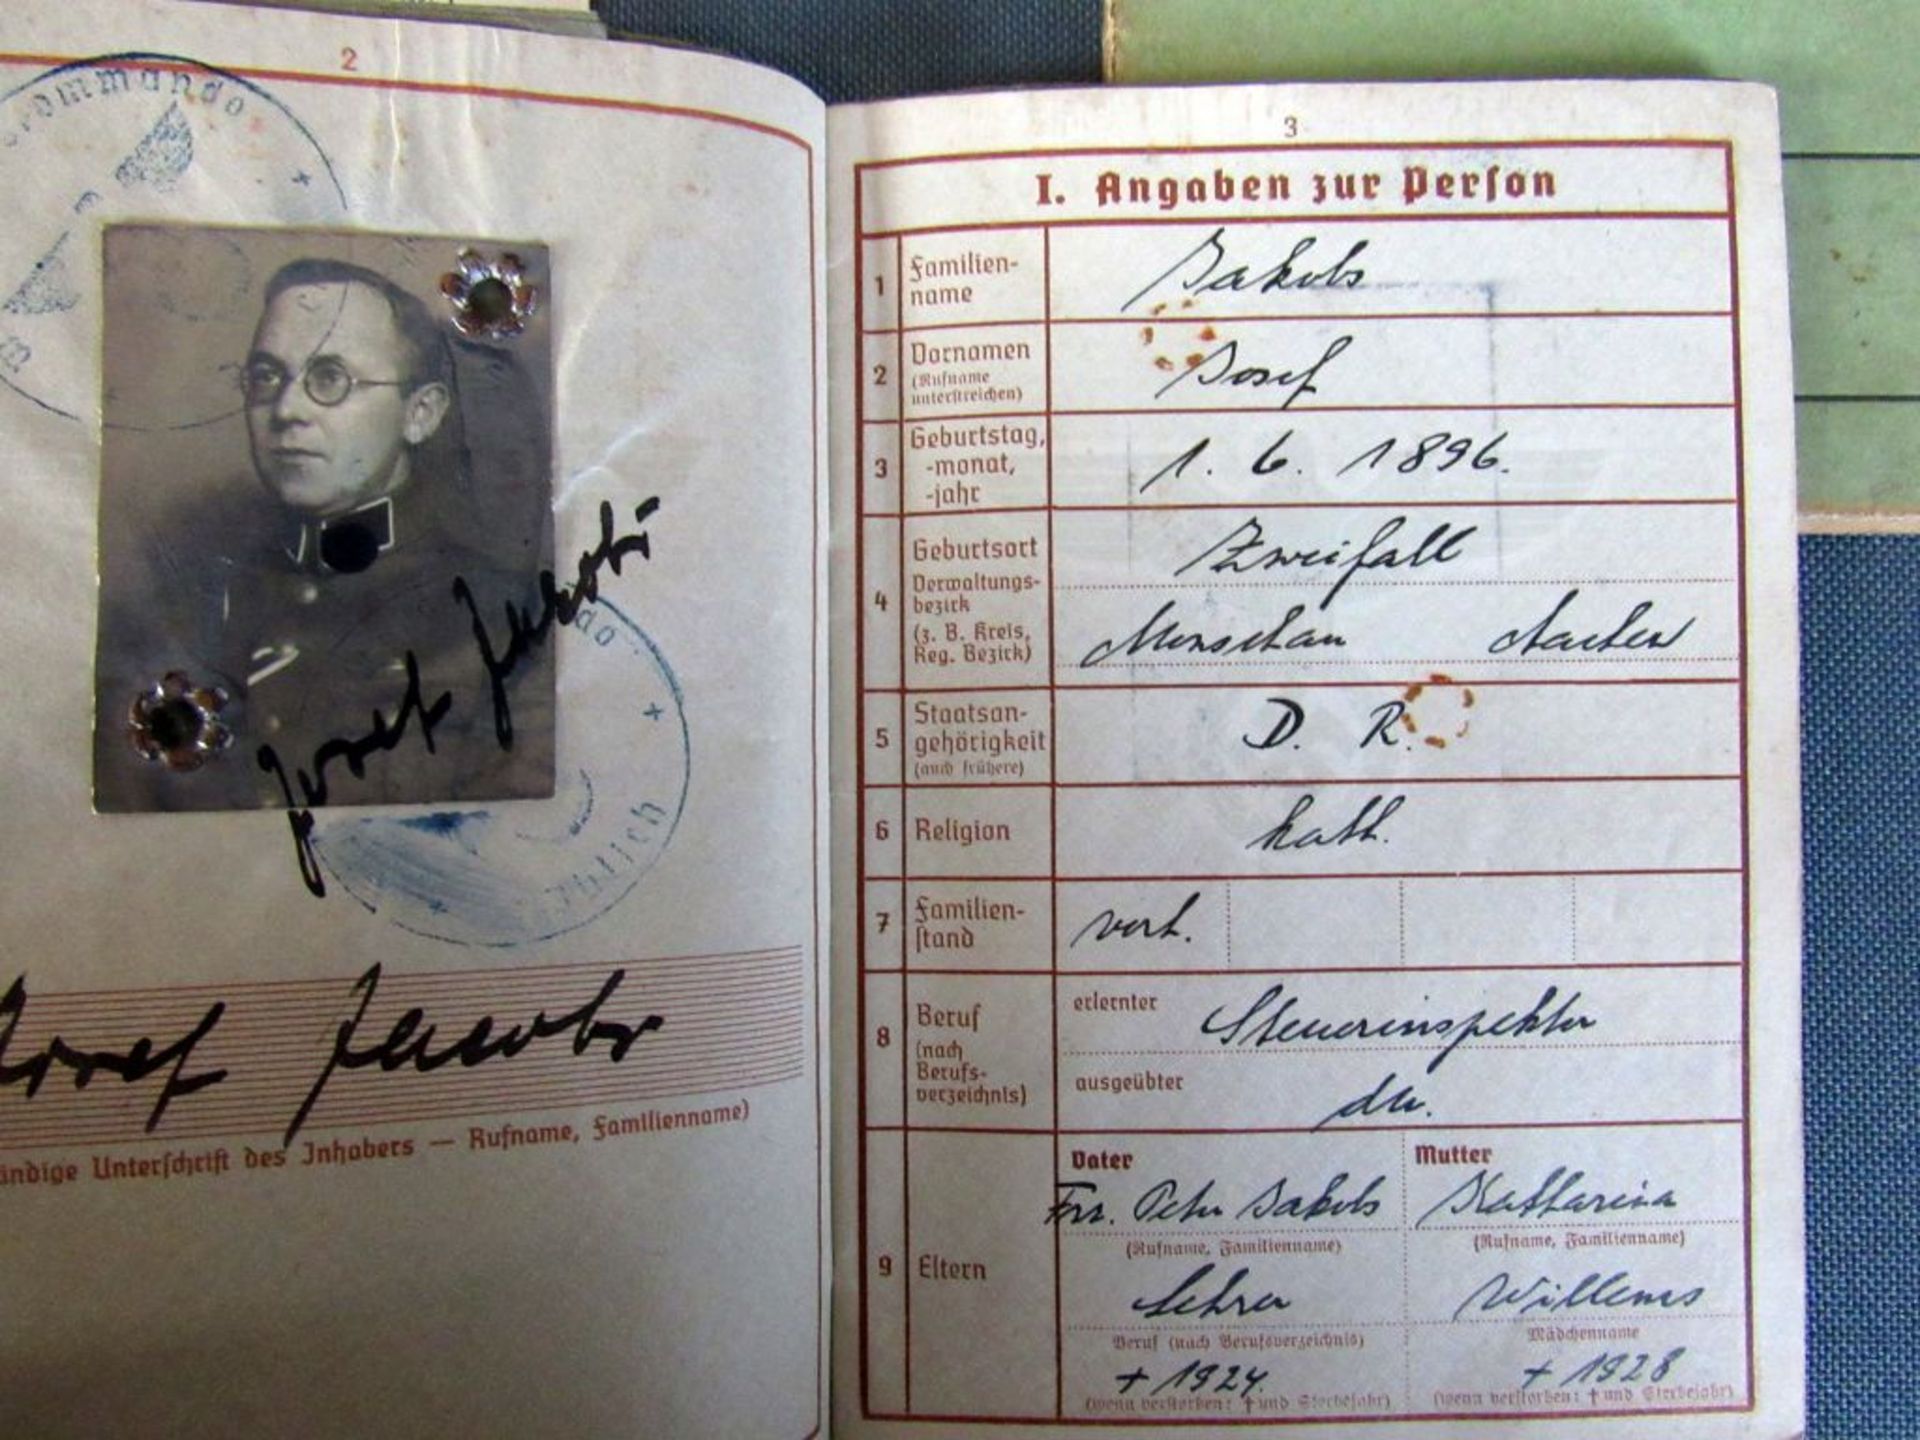 2
ommando
Josef Jakobs
do
Jülich
Josef Jakobs
ändige Unterschrift des Inhabers — Rufname, Familienname)
3
I. Angaben zur Person
1 Familien-
name
Jakobs
2 Vornamen
(Rufname
unterstreichen)
Josef
3 Geburtstag,
-monat,
-jahr
1. 6. 1896.
4 Geburtsort
Zweifall
Verwaltungs-
bezirk
(z. B. Kreis,
Reg. Bezirk)
Monschau Aachen
5 Staatsan-
gehörigkeit
(auch frühere)
D. R.
6 Religion
kath.
7 Familien-
stand
verh.
8 Beruf
(nach
Berufs-
verzeichnis)
erlernter Steuerinspektor
ausgeübter
9 Eltern
Vater
Frz. Peter Jakobs
(Rufname, Familienname)
Lehrer
Beruf (nach Berufsverzeichnis)
+ 1924.
(wenn verstorben: † und Sterbejahr)
Mutter
Katharina
(Rufname, Familienname)
Willems
Mädchenname
+ 1928
(wenn verstorben: † und Sterbejahr)